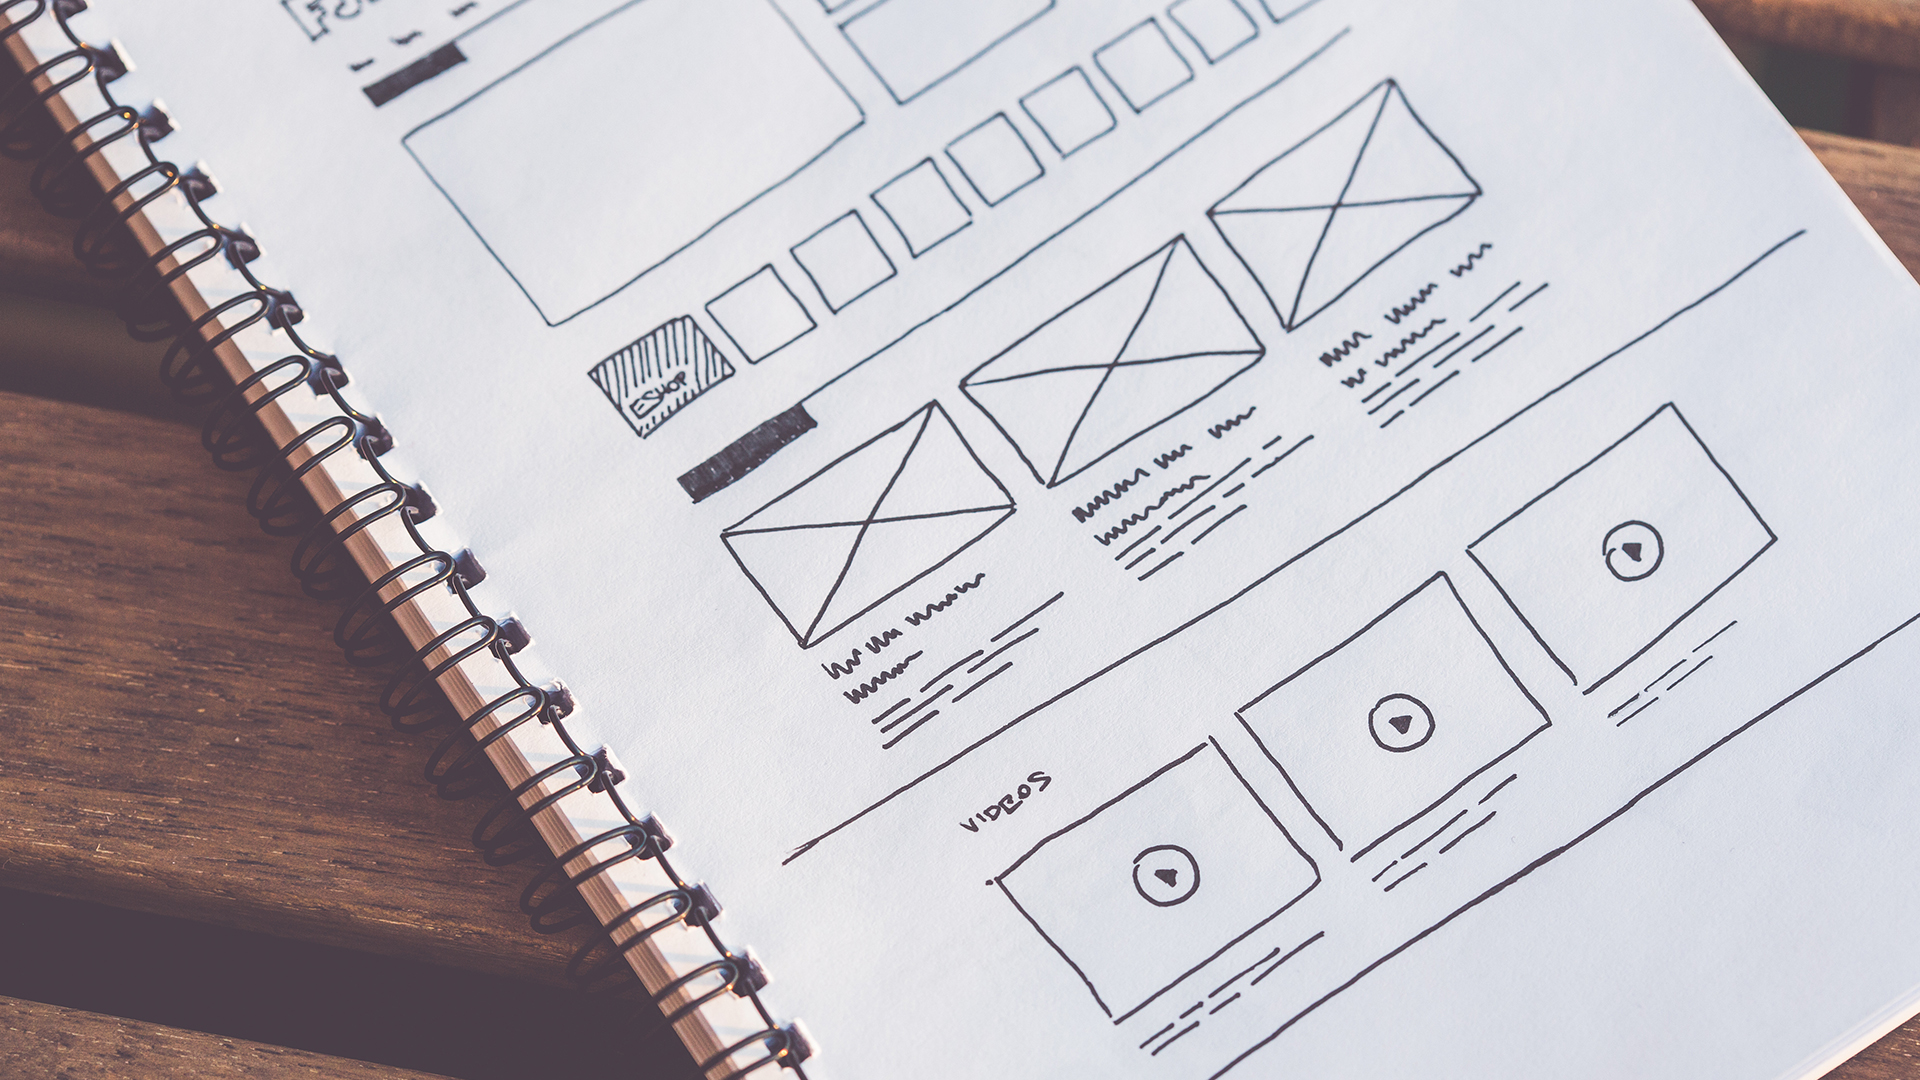 ESHOP
VIDEOS